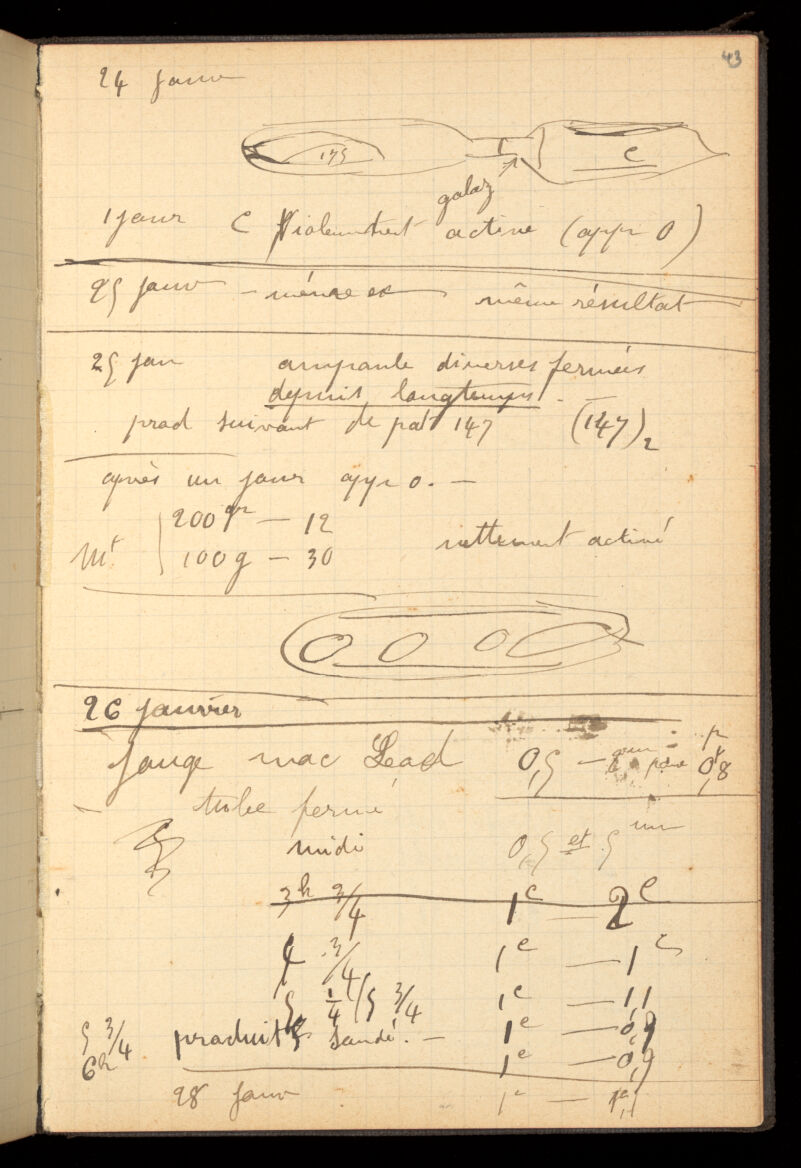 43
24 janv
175
C
galaz
1 jour C Violemment activé (appr 0)
25 janv - même ex même résultat
25 jan ampoule diverses fermées
depuis longtemps. -
prod suivant de pat 147 (147)2
après un jour appr 0. -
200 gr - 12
Mt 100 g - 30 nettement activé
26 janvier
Jauge mac Lead 0,5 - 0,8
tube fermé
midi 0,5 et 5 mm
3h 3/4 1c - 2c
4 3/4 1c - 1c
5 1/4 / 5 3/4 1c - 11
5 3/4 produit soudé. - 1c - 0,9
6h 1c - 0,9
28 janv 1c